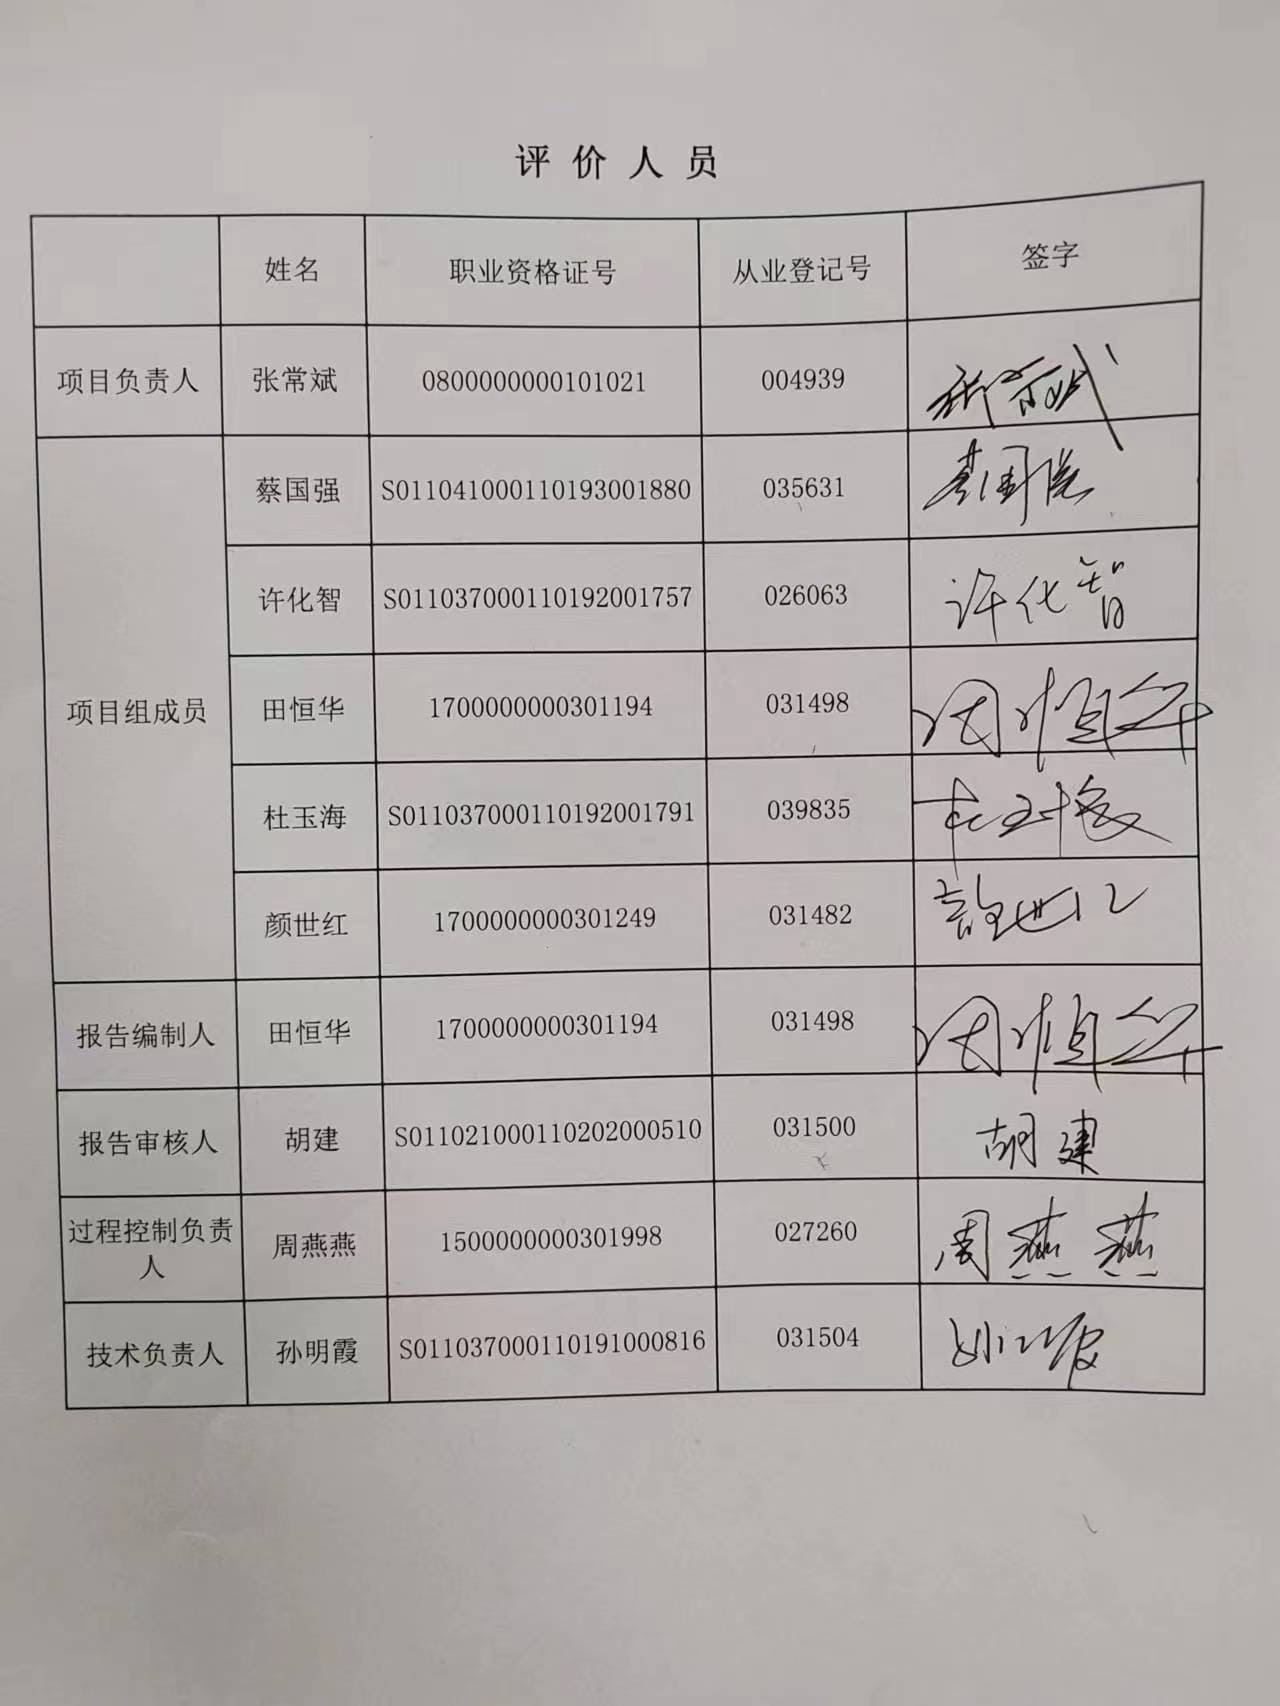 评价人员
姓名 职业资格证号 从业登记号 签字
项目负责人 张常斌 0800000000101021 004939
蔡国强 S011041000110193001880 035631 蔡国强
许化智 S011037000110192001757 026063 许化智
项目组成员 田恒华 1700000000301194 031498 田恒华
杜玉海 S011037000110192001791 039835 杜玉海
颜世红 1700000000301249 031482 颜世红
报告编制人 田恒华 1700000000301194 031498 田恒华
报告审核人 胡建 S011021000110202000510 031500 胡建
过程控制负责
人 周燕燕 1500000000301998 027260 周燕燕
技术负责人 孙明霞 S011037000110191000816 031504